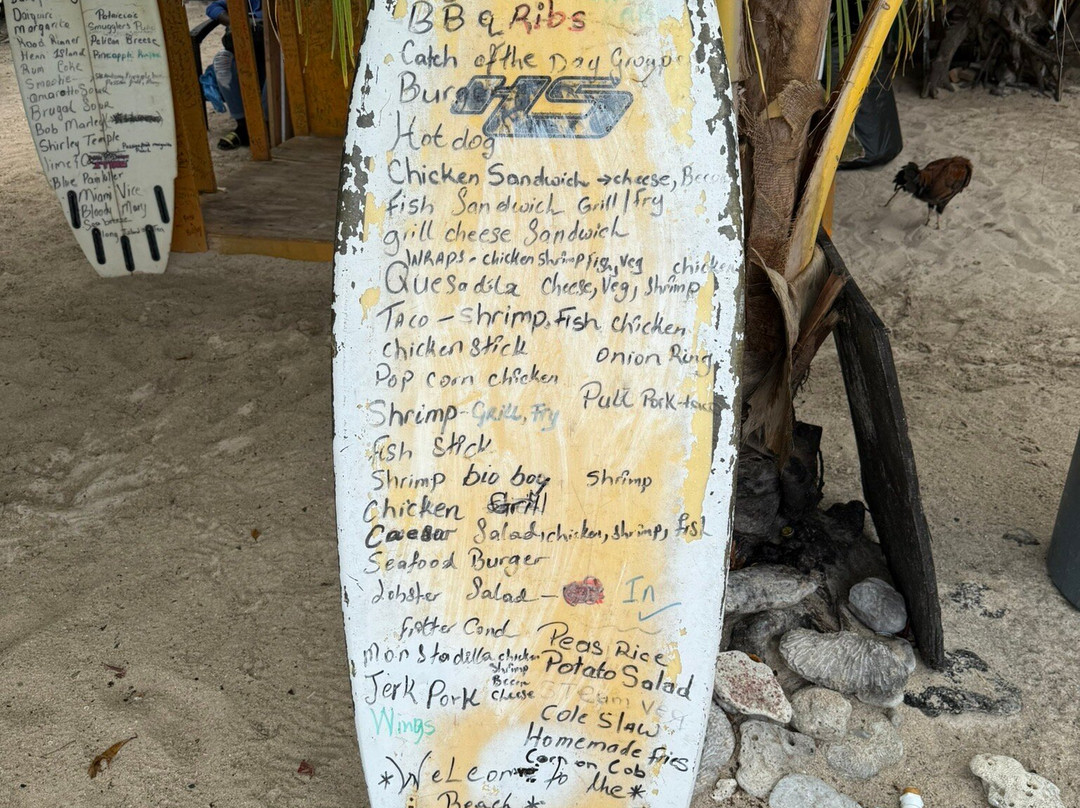 Daiquiri
margarita
Road Runner
Henn Island
Rum Coke
Smache-
amaretto Sour
Brugal Sour
Bob Marley
Shirley Temple
lime?
Blue Painbller
Miami Vice
Bloody Mary
Sea breeze
long Island
Smuggler's
Pelican Breeze
Pineapple
BBq Ribs
Catch of the Day Group
Burg
HS
Hot dog
Chicken Sandwich → cheese, Bec
fish Sandwich Grill/fry
grill cheese Sandwich
WRAPS - chicken shrimp fish, veg
Quesadila cheese, Veg, shrimp chicken
Taco - Shrimp, Fish chicken
chicken stick onion Ring
Pop corn chicken
Pull Pork
Shrimp - Grill, Fry
fish stick
Shrimp bio boy Shrimp
chicken Grill
Caesar Salad, chicken, shrimp, fish
Seafood Burger
Lobster Salad - In
fritter Cond
Peas Rice
monstadilla chicken
shrimp
Becon
cheese
Potato Salad
Jerk Pork
STeam veg
Wings
Cole Slaw
Homemade fries
Corn on Cob
*Welcome to the*
Beach *